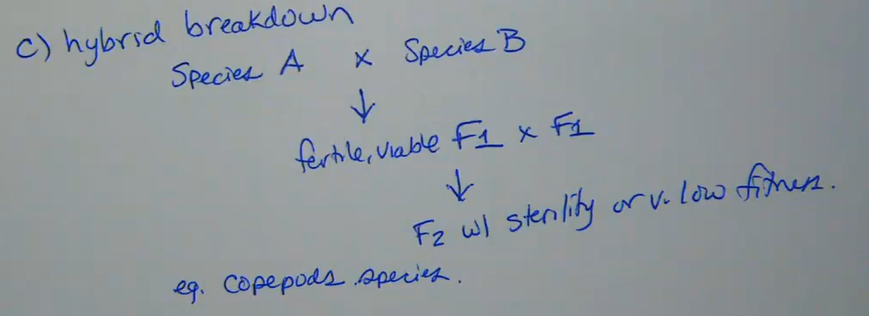 c) hybrid breakdown
Species A x Species B
↓
fertile, viable F1 x F1
↓
F2 w/ sterility or v. low fitness.
eg. copepods species.